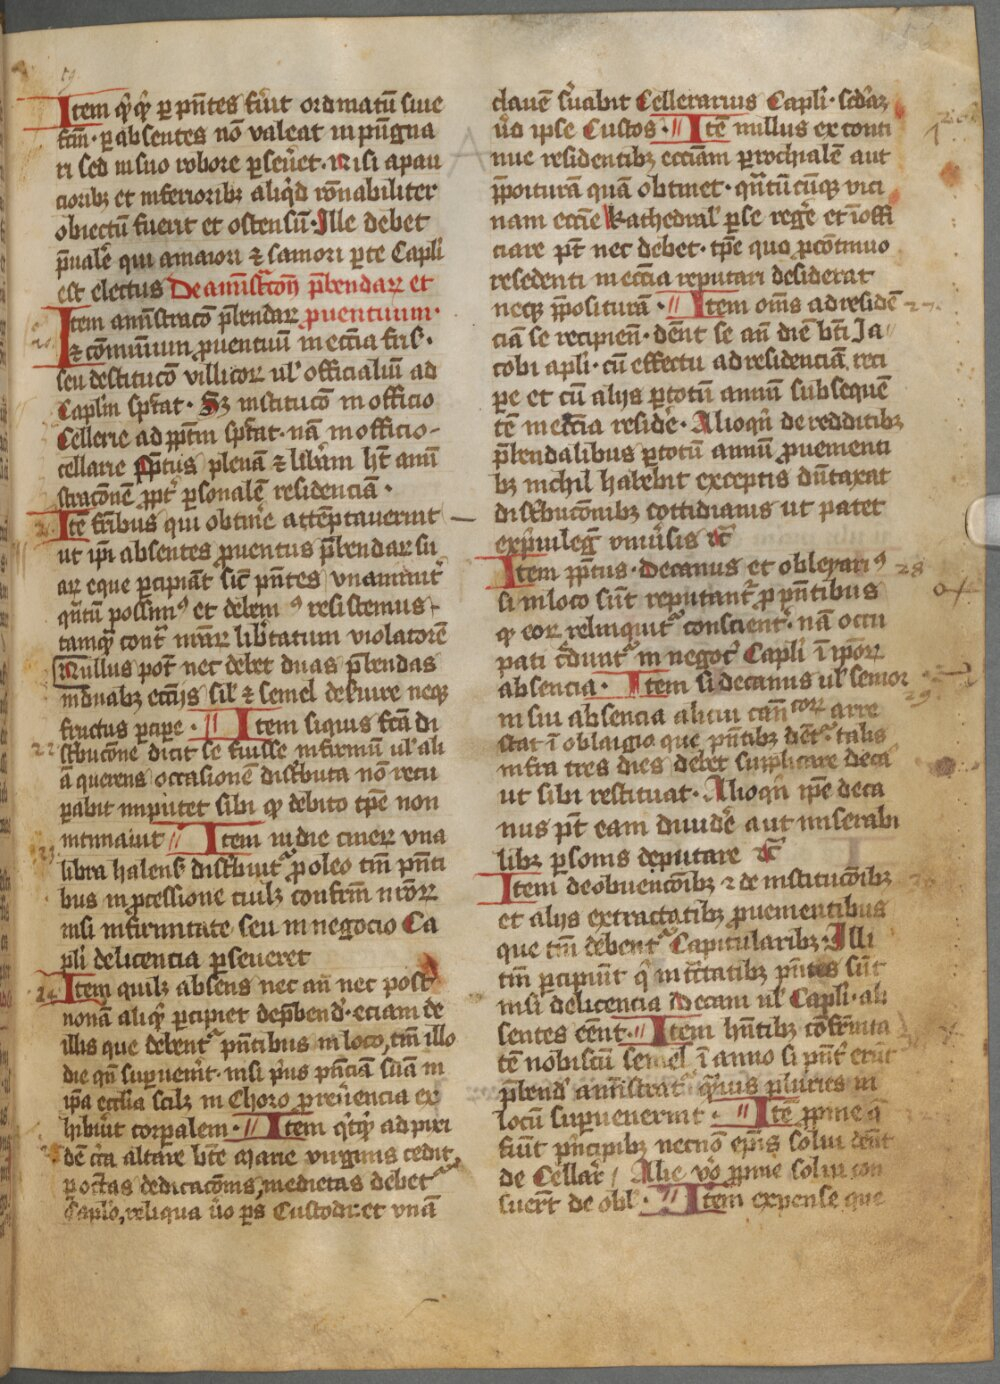 59
Item q̄q̄ per pn̄tes fūit ordinatū siue
fcm̄ · per absentes nō valeat inpūgna
ri sed in suo robore perseūet · nisi a pau
cioribz et inferioribz aliqđ rōnabiliter
obiectū fuerit et ostensū · Ille debet
p̄uale᷑ qui a maiori ⁊ saniori p̱te Capli
est electus De amīstr̄con̄ p̄bendaꝝ et
Item amīstracō p̄bendaꝝ prouentuum ·
⁊ cōmuniun prouentuū in ecc̄ia firs̄ ·
seu destitucō villicoꝝ ul̓ officialiū ad
Caplm̄ spc̄tat · Sz institucō in officio
Cellerie ad pptm̄ spc̄tat · nā in officio
cellarie ppt̄us plenā ⁊ lib̄am hꝫ amī
stracōnē ppt̄ personalē residenciā ·
Itē fr̄ibus qui obtin̄e attēptauerint
ut ip̄i absentes prouentus p̄bendaꝝ su
aꝝ eque percipiāt sic̄ pn̄tes vnanimit̄
qn̄tū possimꝰ et debemꝰ resistemus
tamqͣ cont̄ nr̄aꝝ lib̄tatum violatorē
Nullus pot̄ nec debet duas p̄bendas
in duabz ecc̄ijs sil̓ ⁊ semel des̄uire neqꝫ
fructus p̱cip̱e · // Item siquis fc̄a di
22 st̄bucōne dicit se fuisse infirmū ul̓ ali
ā querens occasionē dist̄buta nō recu
perabit imputet sibi qꝫ debito tp̄e non
intimauit // Item in die cineꝝ vna
23 libra halens̄ dist̄buit᷑ pro oleo tm̄ pn̄ti
bus in processione ciuilz confr̄m nr̄oꝝ
nisi infirmitate seu in negocio Ca
pli de licencia perseueret
24 Item quilz absens nec an̄ nec post
nonā aliqͥ percipiet de p̄bend̓ · eciam de
illis que debent᷑ pn̄tibus in loco, tm̄ illo
die qn̄ superuen̄it · nisi p̓us pn̄ciā suā in
ip̄a ecclīa scilz in Choro p̱ reūencia ex
hibūit corpalem · // Item qͥcqͥd ad pixi
dē circa altare bt̄e Marie virginis cedit,
per oct̄as dedicacōnis, medietas debet᷑
Caplo, reliqua ū̊o p̱s Custodi · et vnā
clauē s̄uabit Cellerarius Capli · sc̄daꝫ
ū̊o ipse Custos · // Itē nullus ex conti
nue residentibz ecc̄iam perrochialē aut
p̄posituram quā obtinet · qn̄tūcūqꝫ vici
nam ecc̄ie kathedral̓ per se reg̓e et ī offi
ciare pt̄ nec debet · tp̄e quo p̱ continuo
resedenti in ecc̄ia reputari desiderat
neqꝫ p̄posituram · // Item om̄s ad residē 27
ciā se recipien̄ · dēnt se an̄ diē bt̄i Ja
cobi apl̓i · cū effectu ad residenciā reci
pe et cū alijs per totū annū subsequē
tē in ecc̄ia reside᷑ · Alioqn̄ de redditibz
p̄bendalibus per totū annū prouenienti
bz nichil habebit exceptis dūtaxat
dist̄bucōnibz cottidianis ut patet
ex p̱uileg̓ vniūsis ⁊c̄
Item ppt̄us · decanus et oblegariꝰ 28
si in loco sūt reputant᷑ pro pn̄tibus
qꝫ eoꝝ relinquit᷑ conscient̄ · nā occu
pati c̄dunt᷑ in negoc̓ Capli ī ip̄oꝝ
absencia · Item si decanus ul̓ senior 29
in sui absencia alicui can̄icoꝝ arre
stat ī oblaigio que pn̄tibz dēt᷑ · talis
infra tres dies debet supplicare deca
ut sibi restituat · Alioqn̄ ip̄e deca
nus pt̄ eam diuide᷑ aut miserabi
libz personis deputare ⁊c̄
Item de obuencōibz ⁊ de institucōibz 30
et alijs extractatibz prouenientibus
que tm̄ debent᷑ Capitularibz · Illi
tm̄ percipiūt qͥ in tc̄tatibz pn̄tes sūt
nisi de licencia Decani ul̓ Capli · ab
sentes eēnt · // Item hn̄tibz cōfr̄nita
tē nobiscū semel ī anno si pn̄t̄ erūt
p̄bend̓ amīstrat᷑ qͣuis pluries in
locū superuenerint · // Itē ppine q̄
fiūt p̱ncipibz necnō ep̄is solui dēnt
de Cellar̄ / Alie ū̊o ppine solui con
sueūt de obl̓ · // Item expense que